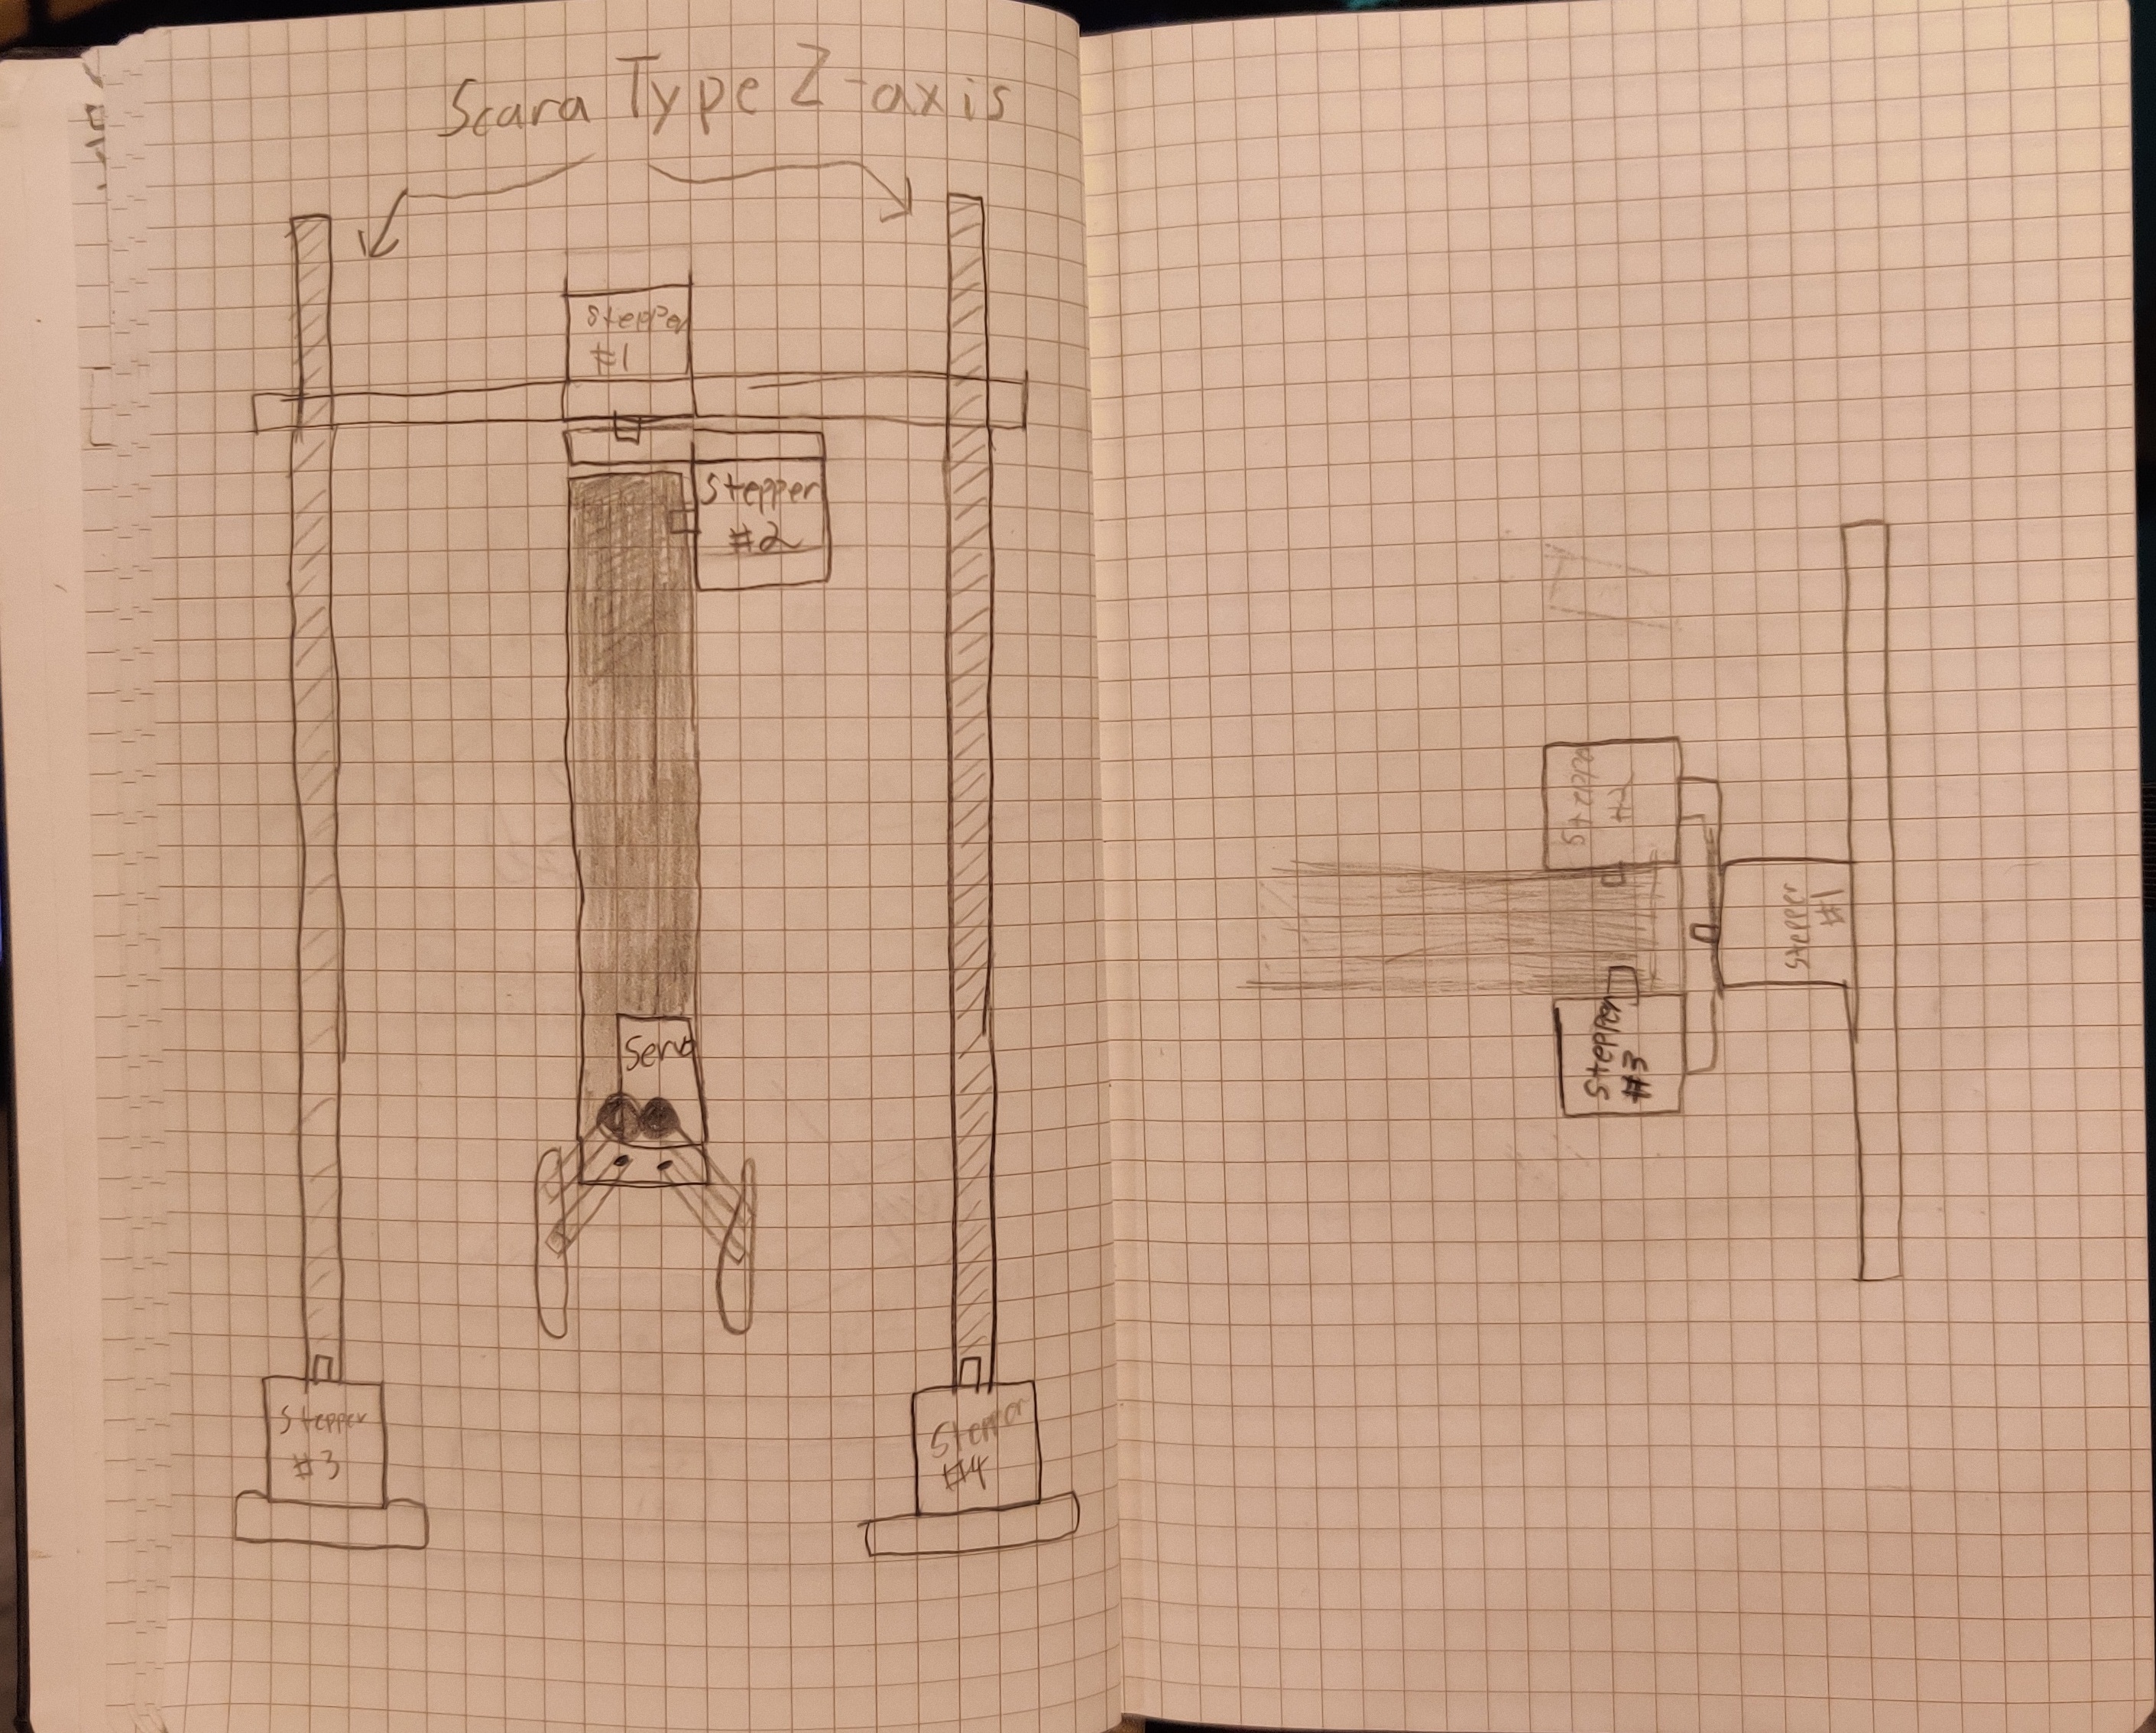 Scara Type Z-axis
Stepper
#1
Stepper
#2
Servo
Stepper
#3
Stepper
#4
Stepper
#2
Stepper
#1
Stepper
#3